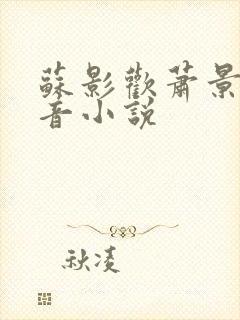 蘇影歡蕭景
音小説
秋凌